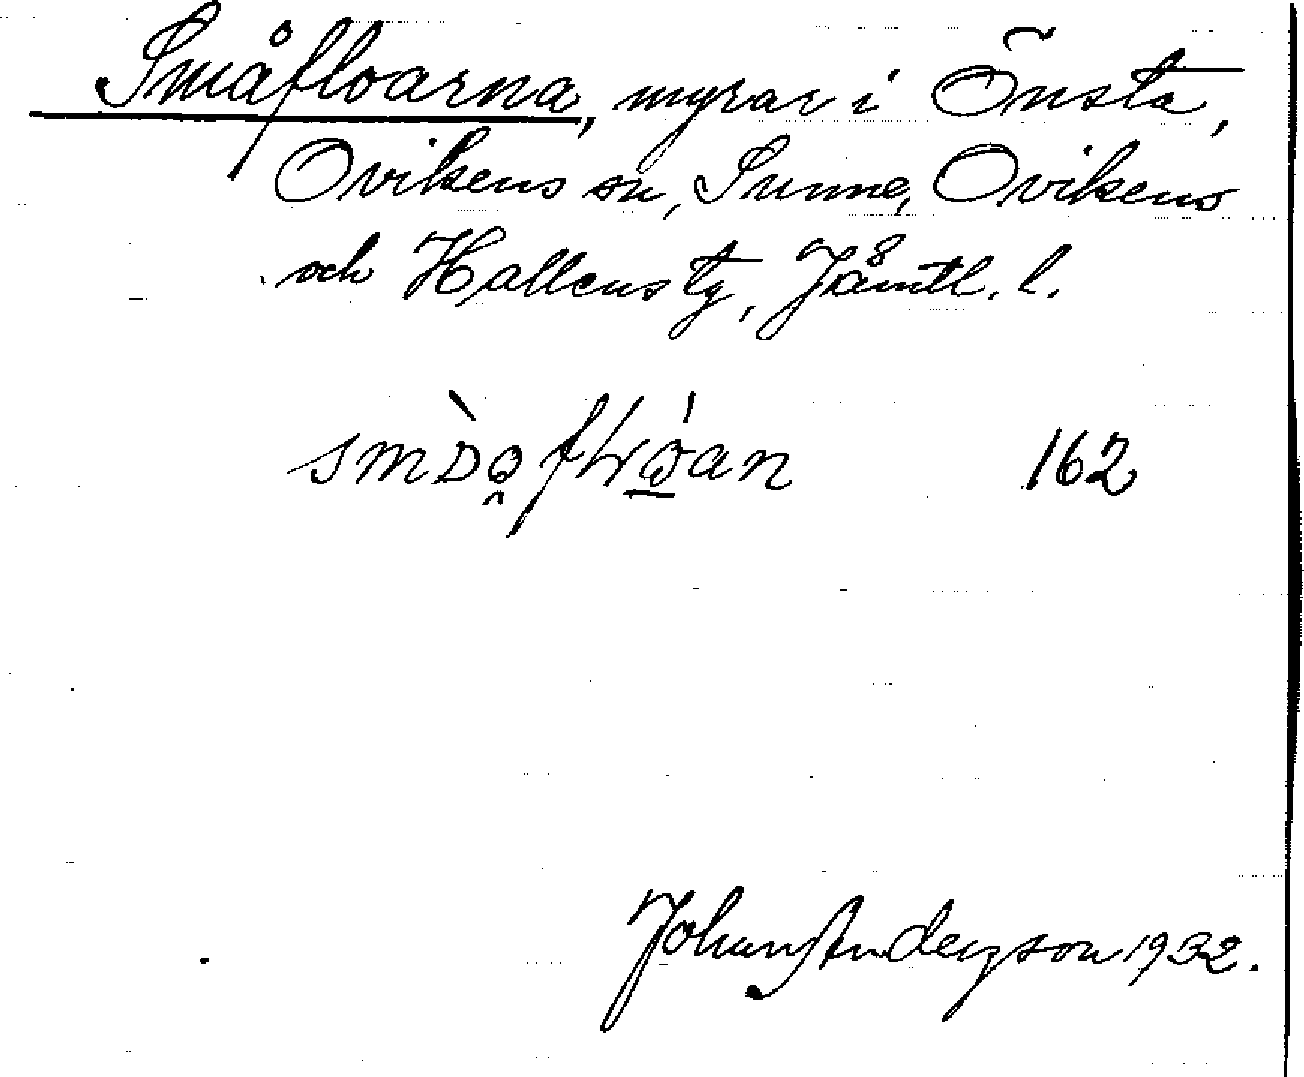 Småfloarna, myrar i Önsta,
Ovikens sn, Sunne, Ovikens
och Hallens tg, Jämtl. l.
162
Johan Anderzson 1932.